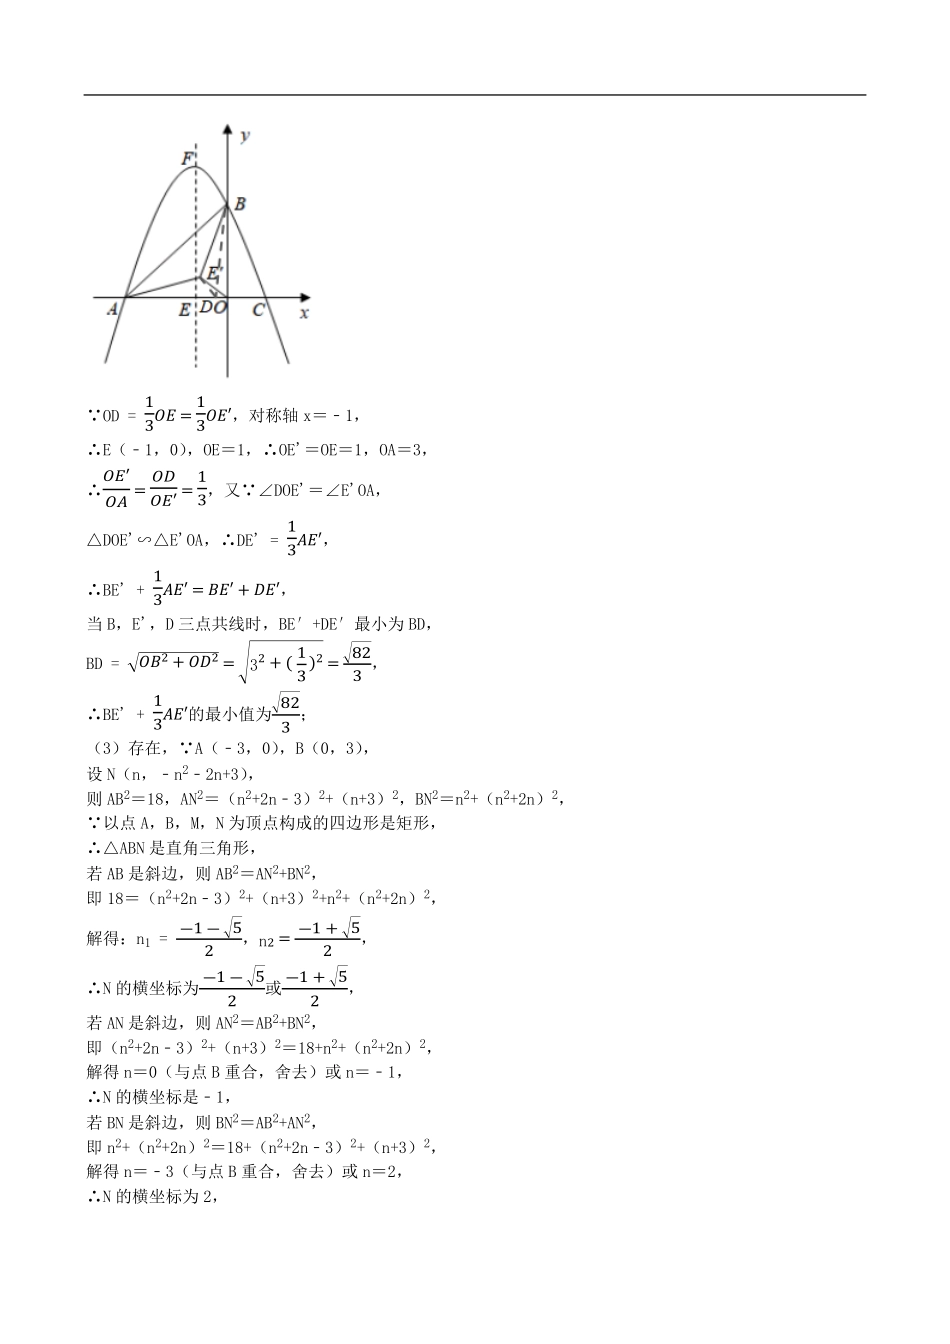 y
F
B
E'
A E D O C x
∵OD = 1/3 OE = 1/3 OE′，对称轴 x＝﹣1，
∴E（﹣1，0），OE＝1，∴OE'＝OE＝1，OA＝3，
∴OE′/OA = OD/OE′ = 1/3，又∵∠DOE'＝∠E'OA，
△DOE'∽△E'OA，∴DE' = 1/3 AE′，
∴BE' + 1/3 AE′ = BE′ + DE′，
当 B，E'，D 三点共线时，BE′+DE′最小为 BD，
BD = √(OB² + OD²) = √(3² + (1/3)²) = √82/3，
∴BE' + 1/3 AE′的最小值为√82/3；
（3）存在，∵A（﹣3，0），B（0，3），
设 N（n，﹣n²﹣2n+3），
则 AB²＝18，AN²＝（n²+2n﹣3）²+（n+3）²，BN²＝n²+（n²+2n）²，
∵以点 A，B，M，N 为顶点构成的四边形是矩形，
∴△ABN 是直角三角形，
若 AB 是斜边，则 AB²＝AN²+BN²，
即 18＝（n²+2n﹣3）²+（n+3）²+n²+（n²+2n）²，
解得：n₁ = (−1 − √5)/2，n2 = (−1 + √5)/2，
∴N 的横坐标为(−1 − √5)/2或(−1 + √5)/2，
若 AN 是斜边，则 AN²＝AB²+BN²，
即（n²+2n﹣3）²+（n+3）²＝18+n²+（n²+2n）²，
解得 n＝0（与点 B 重合，舍去）或 n＝﹣1，
∴N 的横坐标是﹣1，
若 BN 是斜边，则 BN²＝AB²+AN²，
即 n²+（n²+2n）²＝18+（n²+2n﹣3）²+（n+3）²，
解得 n＝﹣3（与点 B 重合，舍去）或 n＝2，
∴N 的横坐标为 2，